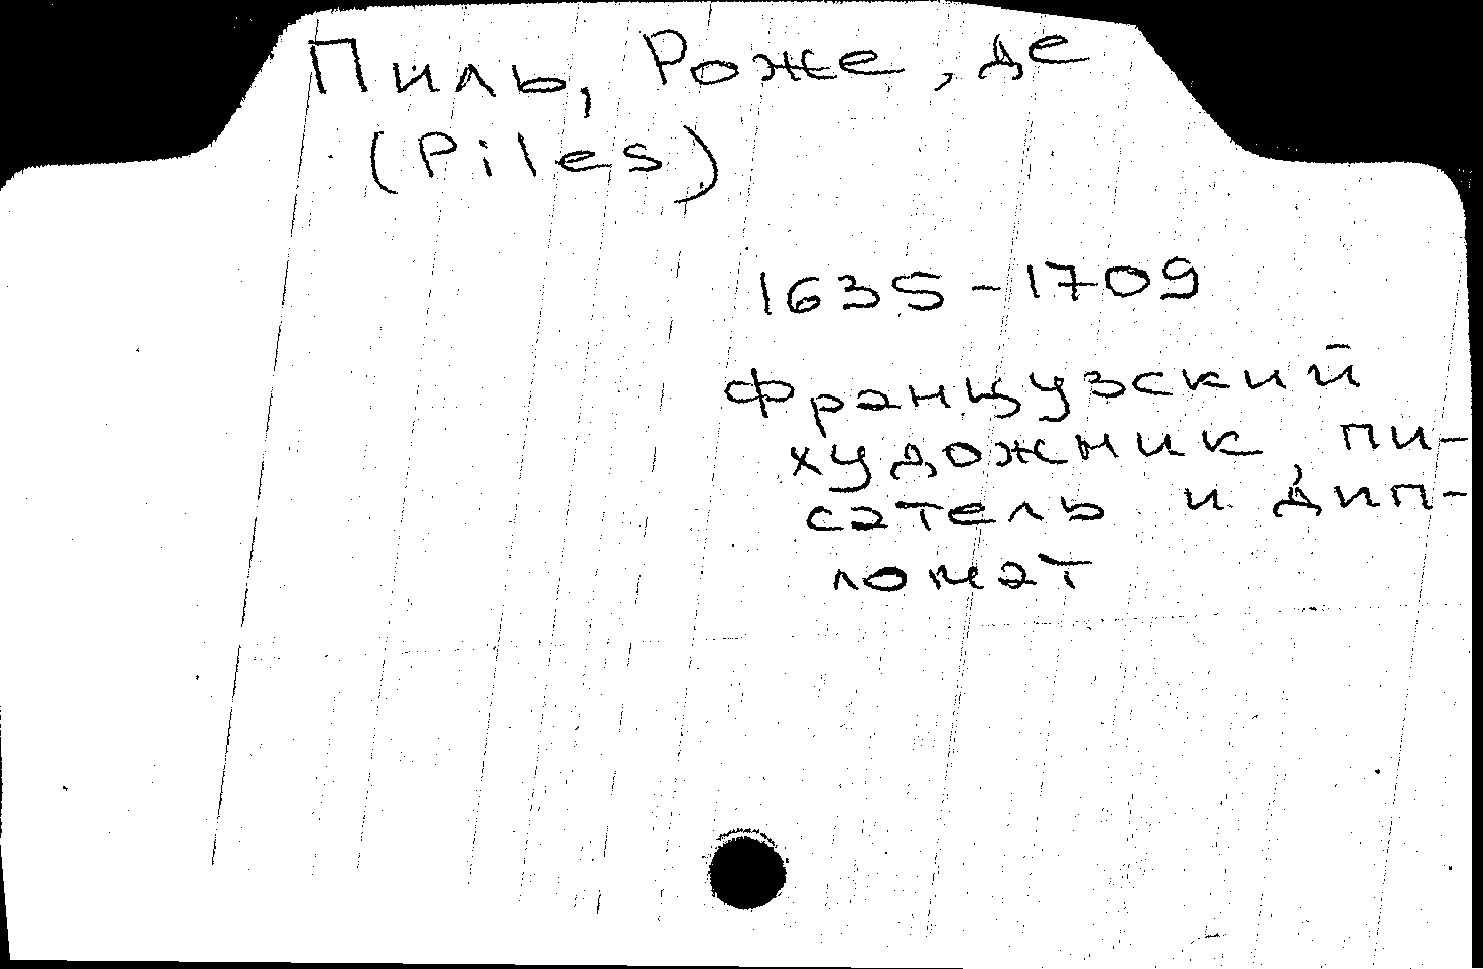 Пиль, Роже, де
(Piles)
1635-1709
французский
художник, пи-
сатель и дип-
ломат